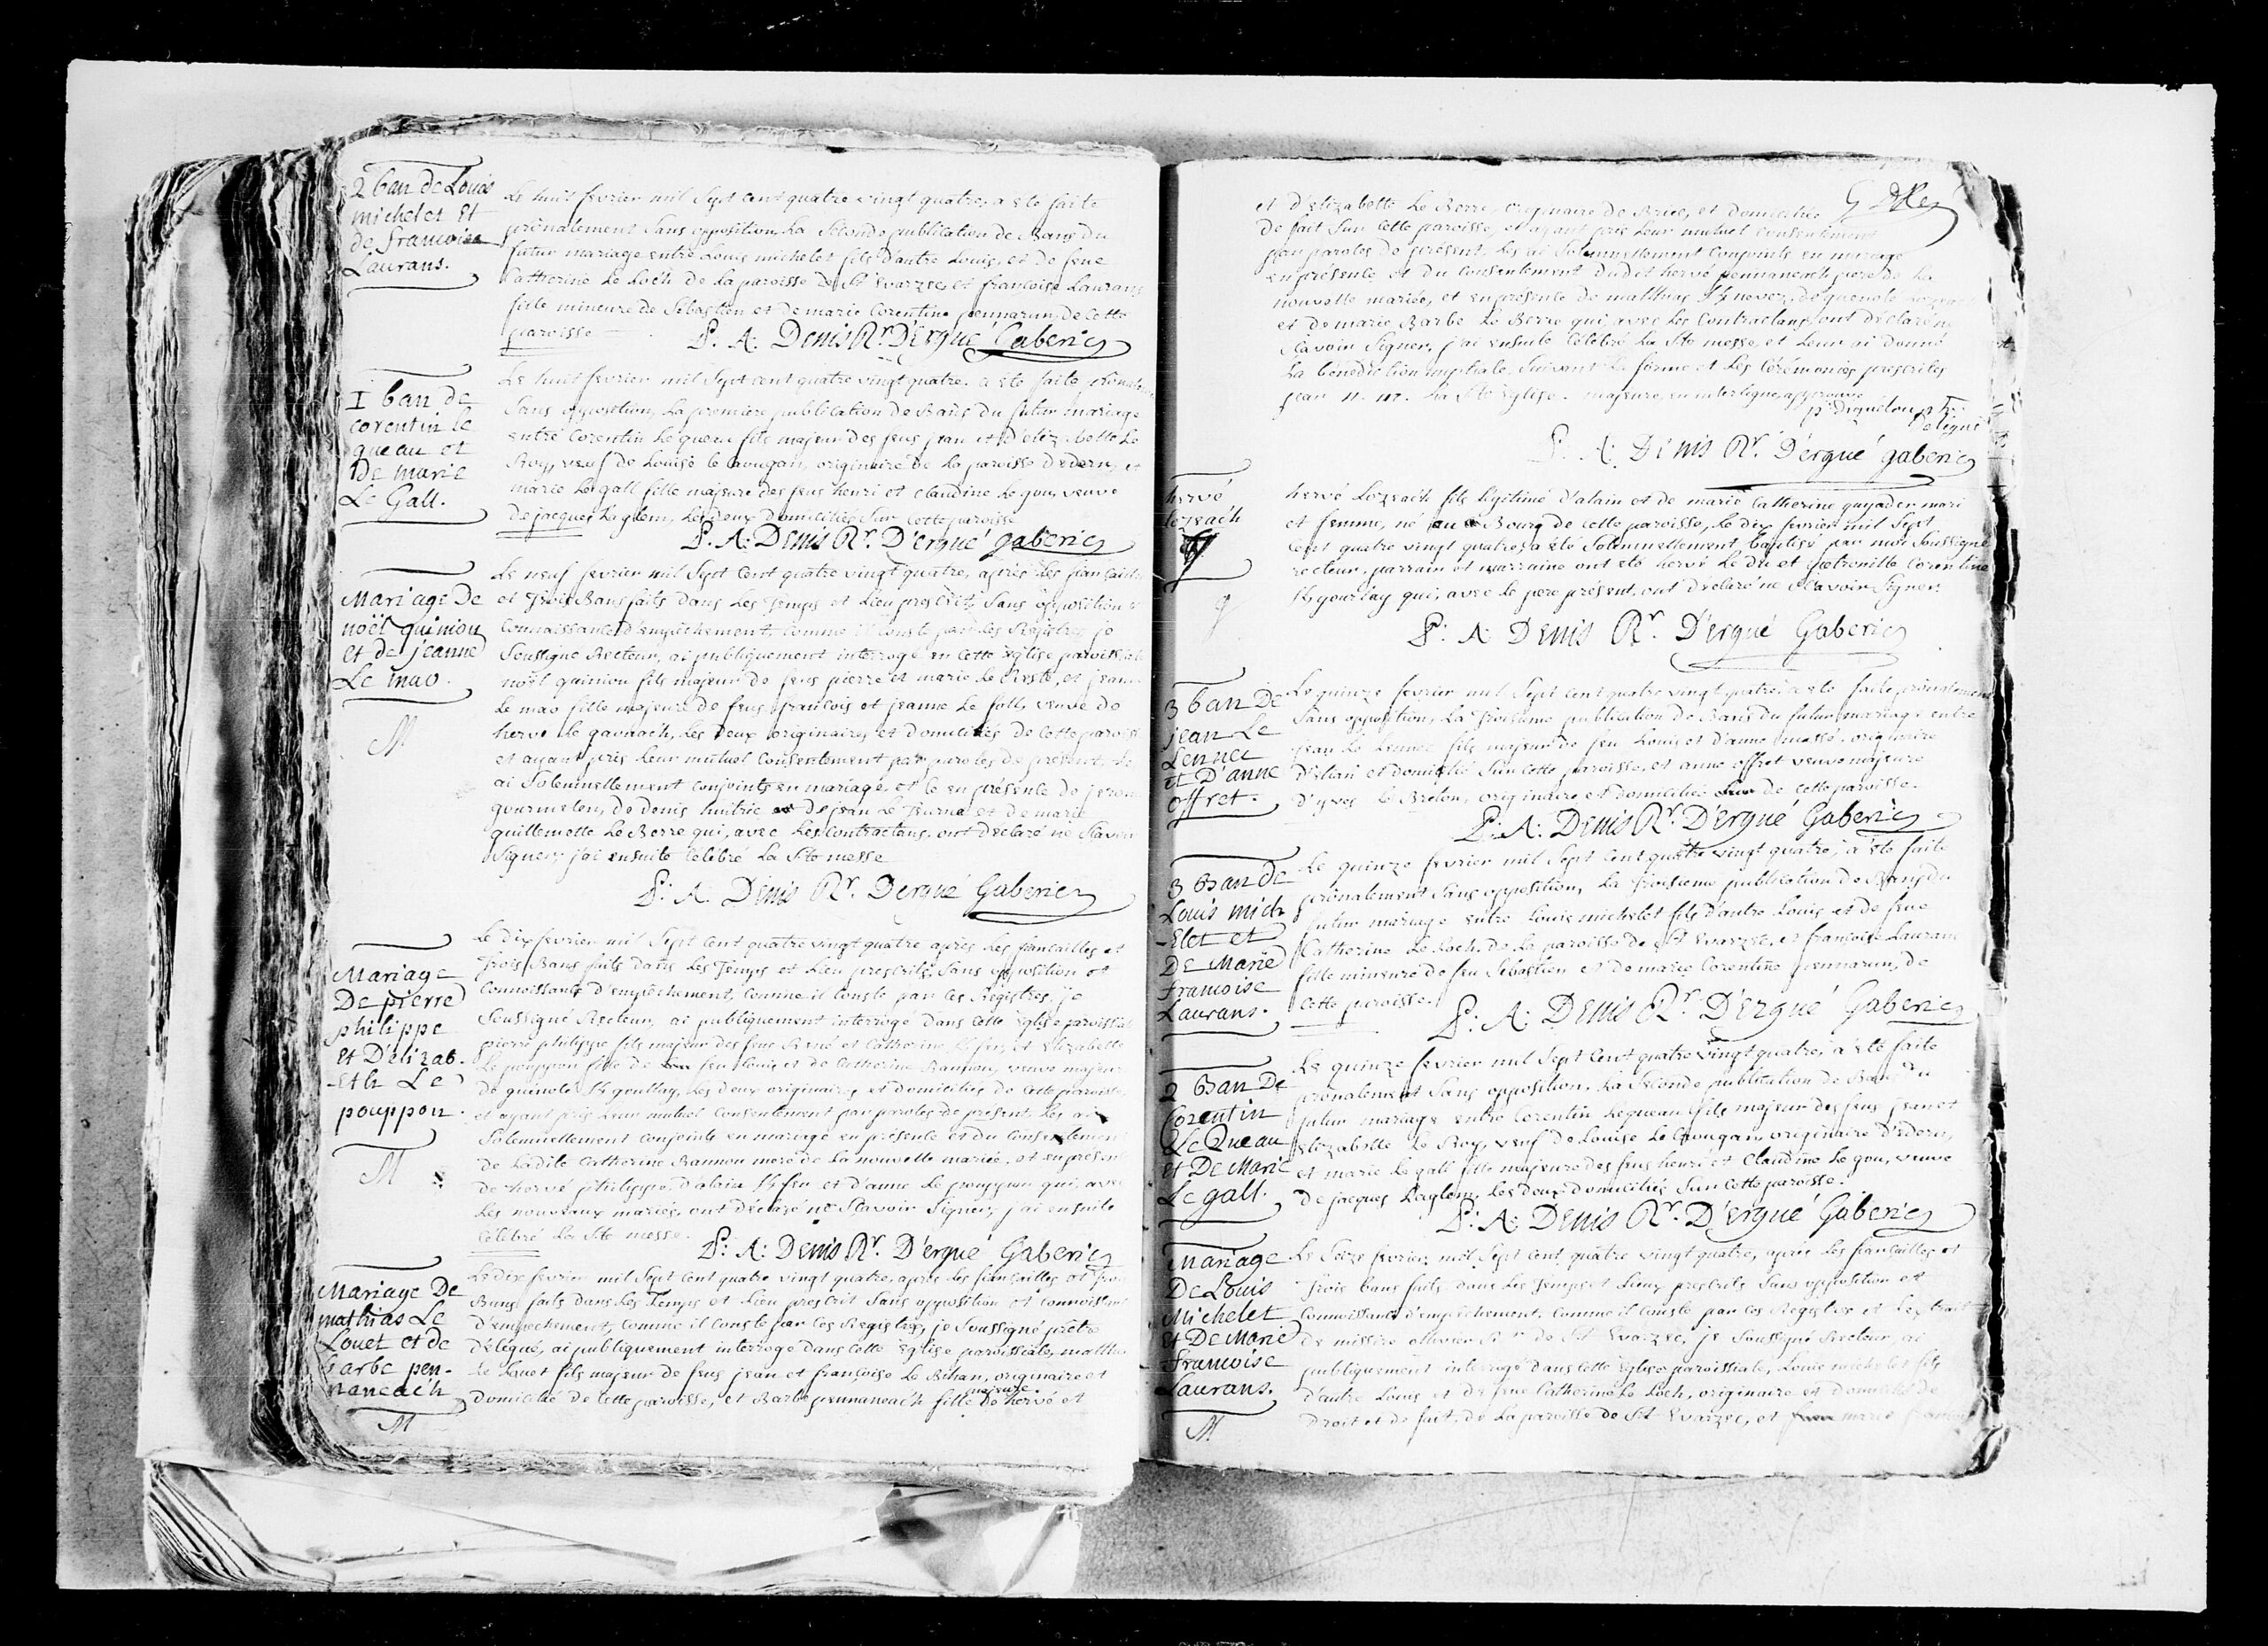 2 ban de Louis
michelet Et
de francoise
Laurans.
Le huit fevrier mil Sept cent quatre vingt quatre, a ete faite
prônalement Sans opposition, La Seconde publication de Bans du
futur mariage entre Louis michelet fils d'autre Louis, et de feue
Catherine Le Loch de La paroisse de St Evarzec, et françoise Laurans
fille mineure de Sébastien et de marie Corentine pennarun, de Cette
paroisse
P. A. Denis Rr. D'Ergué Gaberic
1 ban de
corentin le
queau et
De marie
Le Gall.
Le huit fevrier mil Sept cent quatre vingt quatre. a ete faite
Sans opposition, La premiere publication de Bans du futur mariage
entre Corentin Le queau fils majeur des feus jean et d'elizabette Le
Roy, veuf de Louise le Caougan, originaire de La paroisse d'edern, et
marie Le gall fille majeure des feus henri et Claudine Le gou, veuve
De jacques Kglem, Les deux Domiciliés Sur Cette paroisse
P. A: Denis Rr. D'ergué gaberic
Mariage De
noël quiniou
et de jeanne
Le mao.
M
Le neuf fevrier mil Sept Cent quatre vingt quatre, après Les fiançailles
et Trois Bans faits dans Les Temps et Lieu prescrits, Sans opposition
Connoissance d'empêchement, Comme il Conste par Les Registres, je
Soussigné Recteur, ai publiquement interrogé en Cette église paroissiale
noël quiniou fils majeur de feus pierre et marie Le Reste, et jeanne
Le mao fille majeure de feus francois et jeanne Le foll, veuve de
hervé le gavnach, Les Deux originaires et Domiciliés de Cette paroisse
et ayant pris Leur mutuel Consentement par paroles de present, Les
ai Solemnellement conjoints en mariage, et Ce en présence de
gourmelen, de Denis huitric et de jean Le Burna et de marie
guillemette Le Berre qui, avec Les Contractans, ont Déclaré ne Scavoir
Signer; j'ai ensuite Célébré La Ste messe
P: A: Denis Rr. D'ergué Gaberic
Mariage
De pierre
philippe
Et D'elizab.
-Eth Le
pouppon.
M
Le dix fevrier mil Sept Cent quatre vingt quatre après Les fiançailles et
Trois Bans faits dans Les Temps et Lieu prescrits, Sans opposition et
Connoissance d'empêchement, Comme il Conste par Ces Registres, je
Soussigné Recteur, ai publiquement interrogé dans Cette Eglise paroissiale
pierre philippe fils majeur des feus René et Catherine et Elizabette
Le pouppon fille de feu Louis et de Catherine Bannon, veuve majeure
de guinole Les Deux originaires et domiciliés de Cette paroisse
et ayant pris Leur mutuel Consentement par paroles de present, Les ai
Solemnellement conjoints en mariage en présence et du Consentement
de Ladite Catherine Bannon mere de La nouvelle mariée, et en présence
de hervé philippe, d'alain et d'anne Le pouppon qui, avec
Les nouveaux mariés, ont déclaré ne Scavoir Signer, j'ai ensuite
Célébré La Ste messe.
P: A: Denis Rr. D'ergué Gaberic
Mariage De
mathias Le
Louet et de
barbe pen-
naneach
M
Le dix fevrier mil Sept Cent quatre vingt quatre, après Les fiançailles et Trois
Bans faits dans Les Temps et Lieu prescrit Sans opposition et connoissance
d'empechement, Comme il Conste par Ces Registres, je Soussigné prêtre
Délégué, ai publiquement interrogé dans Cette Eglise paroissiale,
Le Louet fils majeur de feus jean et françoise Le Bihan, originaire et
majeure
domicilié de Cette paroisse, et Barbe pennaneach fille de hervé et
et d'elizabette Le Berre, originaire de Briec, et domiciliée
De fait Sur Cette paroisse, et ayant pris Leur mutuel Consentement
par paroles de présent, Les ai Solemnellement Conjoints en mariage
en présence et du Consentement dudit hervé pennaneach pere de La
nouvelle mariée, et en présence de matthias de guenole
et de marie Barbe Le Berre qui, avec Les Contractans, ont Déclaré ne
Scavoir Signer, j'ai ensuite Célébré La Ste messe et Leur ai Donné
La bénédiction nuptiale, Suivant La forme et Les Cérémonies prescrites
par La Ste Eglise. majeure, en interligne, approuvé
P: A: Denis Rr. D'ergué gaberic
hervé
lozeach
hervé Lozeach fils légitime d'alain et de marie Catherine guyader mari
et femme, né au Bourg de Cette paroisse, Le dix fevrier mil Sept
Cent quatre vingt quatre, a été Solemnellement baptisé par moi Soussigné
recteur. parrain et marraine ont été hervé Le Du et petronille Corentine
Kgourlay qui, avec Le pere présent, ont Déclaré ne Scavoir Signer.
P: A: Denis Rr. D'ergué Gaberic
3 ban De
jean Le
Lennec
Et D'anne
offret.
Le quinze fevrier mil Sept Cent quatre vingt quatre, a été faite prônalement
Sans opposition, La Troisieme publication de Bans du futur mariage entre
jean Le Lennec fils majeur de feu Louis et d'anne massé. originaire
D'elian et domicilié Sur Cette paroisse, et anne offret veuve majeure
d'yves Le Breton, originaire et domiciliée de Cette paroisse.
P: A: Denis Rr. D'ergué Gaberic
3 Ban de
Louis mich
-Elet et
De Marie
francoise
Laurans.
Le quinze fevrier mil Sept Cent quatre vingt quatre, a été faite
prônalement Sans opposition, La Troisieme publication de Bans du
futur mariage entre Louis michelet fils d'autre Louis et de feue
Catherine Le Loch, de La paroisse de St Evarzec, et françoise Laurans
fille mineure de feu Sébastien et de marie Corentine pennarun, de
Cette paroisse.
P: A: Denis Rr. D'Ergué Gaberic
2 Ban De
Corentin
Le Queau
et De Marie
Le gall.
Le quinze fevrier mil Sept Cent quatre vingt quatre, a été faite
prônalement Sans opposition, La Seconde publication de Bans du
futur mariage entre Corentin Le queau fils majeur des feus jean et
Elizabette Le Roy, veuf de Louise Le Caougan, originaire d'Edern,
et marie Le gall fille majeure des feus henri et Claudine Le gou, veuve
De jacques Kglem, Les deux domiciliés Sur Cette paroisse.
P: A: Denis Rr. D'ergué Gaberic
Mariage
De Louis
Michelet
Et De Marie
francoise
Laurans.
M
Le Seize fevrier mil Sept Cent quatre vingt quatre, après Les fiançailles et
Trois bans faits dans Les Temps et Lieux prescrits Sans opposition et
Connoissance d'empêchement, Comme il Conste par Ces Registres et Lextrait
de missire ollivier Rr de St Evarzec, je Soussigné Recteur, ai
publiquement interrogé dans Cette Eglise paroissiale, Louis michelet fils
d'autre Louis et de feue Catherine Le Loch, originaire et domicilié de
Droit et de fait, de La paroisse de St Evarzec, et marie